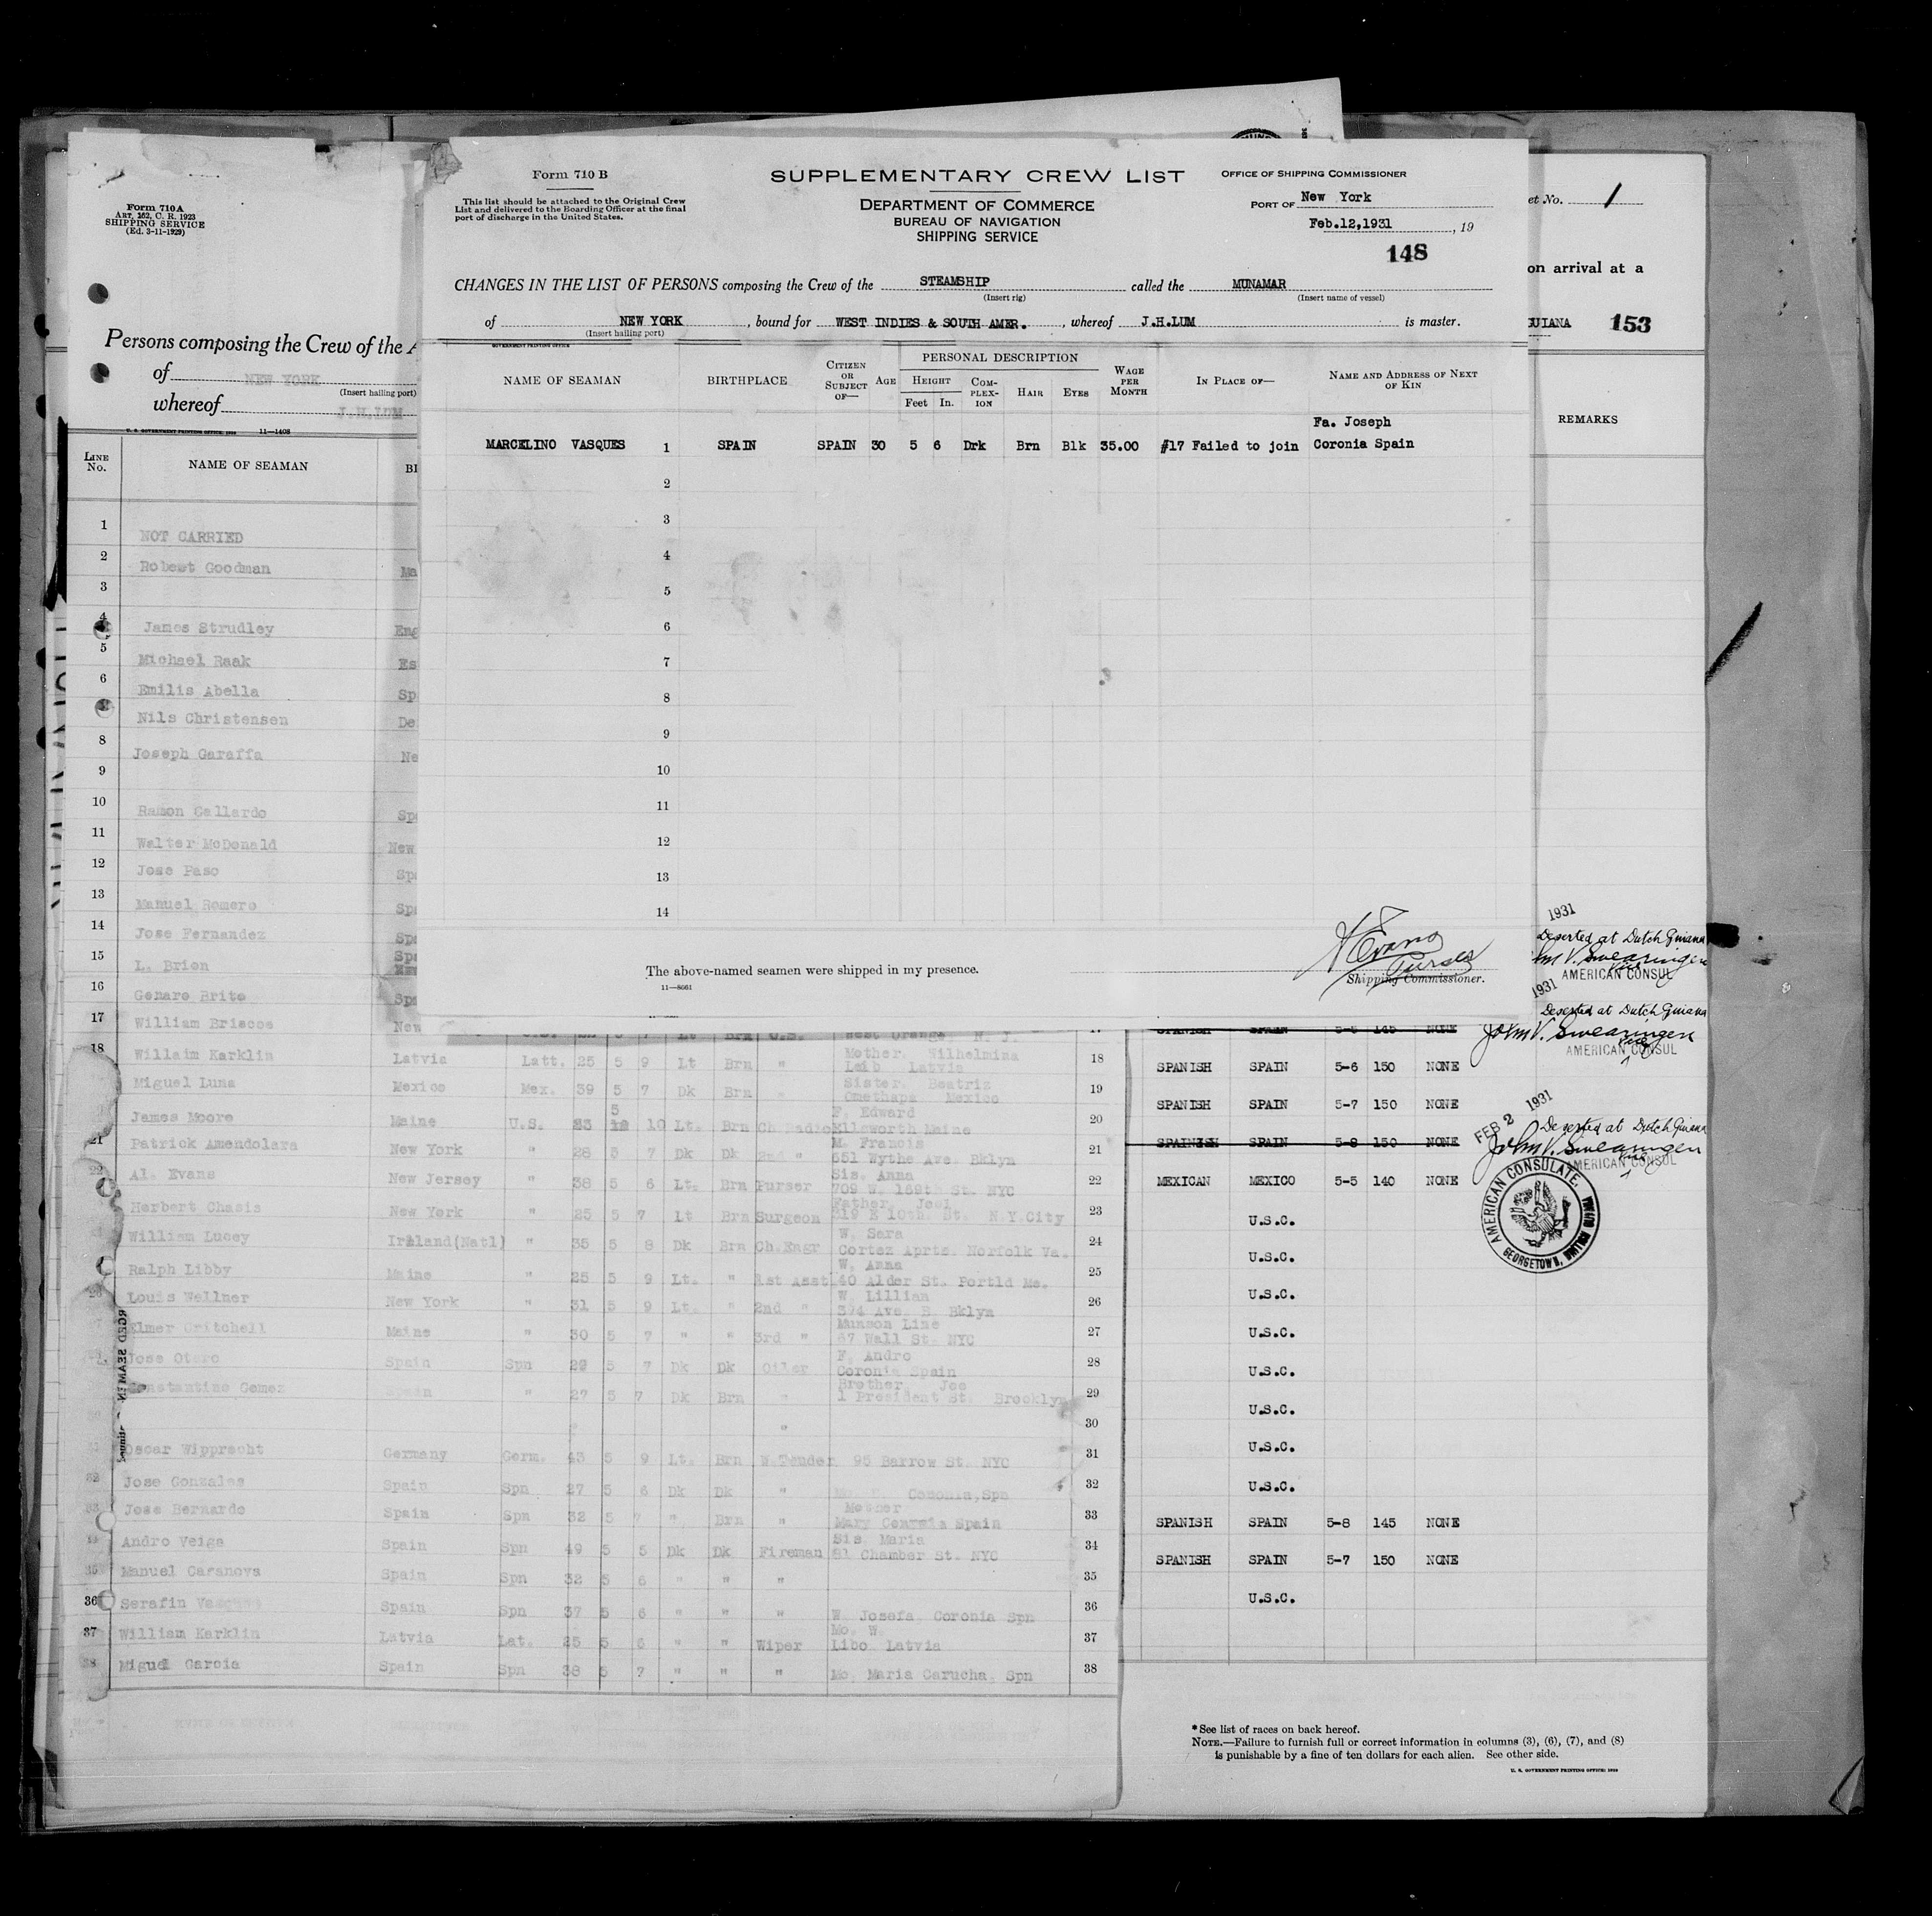 Form 710 B
This list should be attached to the Original Crew
List and delivered to the Boarding Officer at the final
port of discharge in the United States.
SUPPLEMENTARY CREW LIST
DEPARTMENT OF COMMERCE
BUREAU OF NAVIGATION
SHIPPING SERVICE
OFFICE OF SHIPPING COMMISSIONER
PORT OF New York
Feb.12,1931, 19
148
CHANGES IN THE LIST OF PERSONS composing the Crew of the STEAMSHIP called the MUNAMAR
(Insert rig) (Insert name of vessel)
of NEW YORK, bound for WEST INDIES & SOUTH AMER., whereof J.H.LUM is master.
(Insert hailing port)
GOVERNMENT PRINTING OFFICE
NAME OF SEAMAN BIRTHPLACE CITIZEN OR SUBJECT OF— AGE PERSONAL DESCRIPTION HEIGHT Feet In. COMPLEXION HAIR EYES WAGE PER MONTH IN PLACE OF— NAME AND ADDRESS OF NEXT OF KIN
Fa. Joseph
MARCELINO VASQUES 1 SPAIN SPAIN 30 5 6 Drk Brn Blk 35.00 #17 Failed to join Coronia Spain
2
3
4
5
6
7
8
9
10
11
12
13
14
The above-named seamen were shipped in my presence.
11—8061
Evans
Purser
Shipping Commissioner.
Form 710A
ART. 162, C. R. 1923
SHIPPING SERVICE
(Ed. 3-11-1929)
Persons composing the Crew of the
of NEW YORK
(Insert hailing port)
whereof J.H.LUM
11—1408
LINE No. NAME OF SEAMAN BI
1 NOT CARRIED
2 Robert Goodman Ma
3
4 James Strudley Eng
5 Michael Raak Es
6 Emilis Abella Sp
Nils Christensen De
8 Joseph Garaffa Ne
9
10 Ramon Gallardo Sp
11 Walter McDonald New
12 Jose Paso Sp
13 Manuel Romero Sp
14 Jose Fernandez Sp
15 L. Brion Sp
16 Genaro Brito Sp
17 William Briscoe New West Orange N. J.
18 Willaim Karklin Latvia Latt. 25 5 9 Lt Brn " Mother. Wilhelmina Leib Latvia 18
Miguel Luna Mexico Mex. 39 5 7 Dk Brn Sister. Beatriz Omethapa Mexico 19
James Moore Maine U.S. 5 10 Lt. Brn Ch.Radio F. Edward Ellsworth Maine 20
21 Patrick Amendolara New York " 28 5 7 Dk Dk 2nd " M. Francis 551 Wythe Ave. Bklyn 21
22 Al. Evans New Jersey " 38 5 6 Lt. Brn Purser Sis. Anna 709 W. 169th St. NYC 22
Herbert Chasis New York " 25 5 7 Lt Brn Surgeon Father. Joel 319 E 10th. St. N.Y.City 23
William Lucey Ireland(Natl) " 35 5 8 Dk Brn Ch.Engr W. Sara Cortez Aprts. Norfolk Va. 24
Ralph Libby Maine " 25 5 9 Lt. " 1st Asst W. Anna 40 Alder St. Portld Me. 25
Louis Wellner New York " 31 5 9 Lt. " 2nd " W. Lillian 394 Ave. B Bklyn 26
Elmer Critchell Maine " 30 5 7 " " 3rd " Munson Line 67 Wall St. NYC 27
Jose Otero Spain Spn 29 5 7 Dk Dk Oiler F. Andro Coronia Spain 28
Constantino Gomez Spain " 27 5 7 Dk Brn " Brother Joe 1 President St. Brooklyn 29
30 " 30
Oscar Wipprecht Germany Germ. 43 5 9 Lt. Brn W.Tender 95 Barrow St. NYC 31
32 Jose Gonzales Spain Spn 27 5 6 Dk Dk " Coronia,Spn 32
33 Jose Bernardo Spain Spn 32 5 7 " Brn " Mother Mary Coronia Spain 33
Andro Veiga Spain Spn 49 5 5 Dk Dk Fireman Sis. Maria 81 Chamber St. NYC 34
35 Manuel Casanova Spain Spn 32 5 6 " " " 35
36 Serafin Spain Spn 37 5 6 " " " W. Josefa Coronia Spn 36
37 William Karklin Latvia Lat. 25 5 6 " " Wiper Mo. W. Libo Latvia 37
38 Miguel Garcia Spain Spn 38 5 7 " " " Mo. Maria Carucha. Spn 38
et No. 1
on arrival at a
GUIANA 153
REMARKS
1931
Deserted at Dutch Guiana
John V. Swearingen
Vice
AMERICAN CONSUL
1931
Deserted at Dutch Guiana
SPANISH SPAIN 5-5 145 NONE John V. Swearingen
Vice
AMERICAN CONSUL
SPANISH SPAIN 5-6 150 NONE
SPANISH SPAIN 5-7 150 NONE
FEB 2 1931
Deserted at Dutch Guiana
SPAINISH SPAIN 5-8 150 NONE John V. Swearingen
Vice
AMERICAN CONSUL
MEXICAN MEXICO 5-5 140 NONE
AMERICAN CONSULATE,
GEORGETOWN, BRITISH GUIANA
U.S.C.
U.S.C.
U.S.C.
U.S.C.
U.S.C.
U.S.C.
U.S.C.
U.S.C.
SPANISH SPAIN 5-8 145 NONE
SPANISH SPAIN 5-7 150 NONE
U.S.C.
*See list of races on back hereof.
NOTE.—Failure to furnish full or correct information in columns (3), (6), (7), and (8)
is punishable by a fine of ten dollars for each alien. See other side.
U. S. GOVERNMENT PRINTING OFFICE: 1929